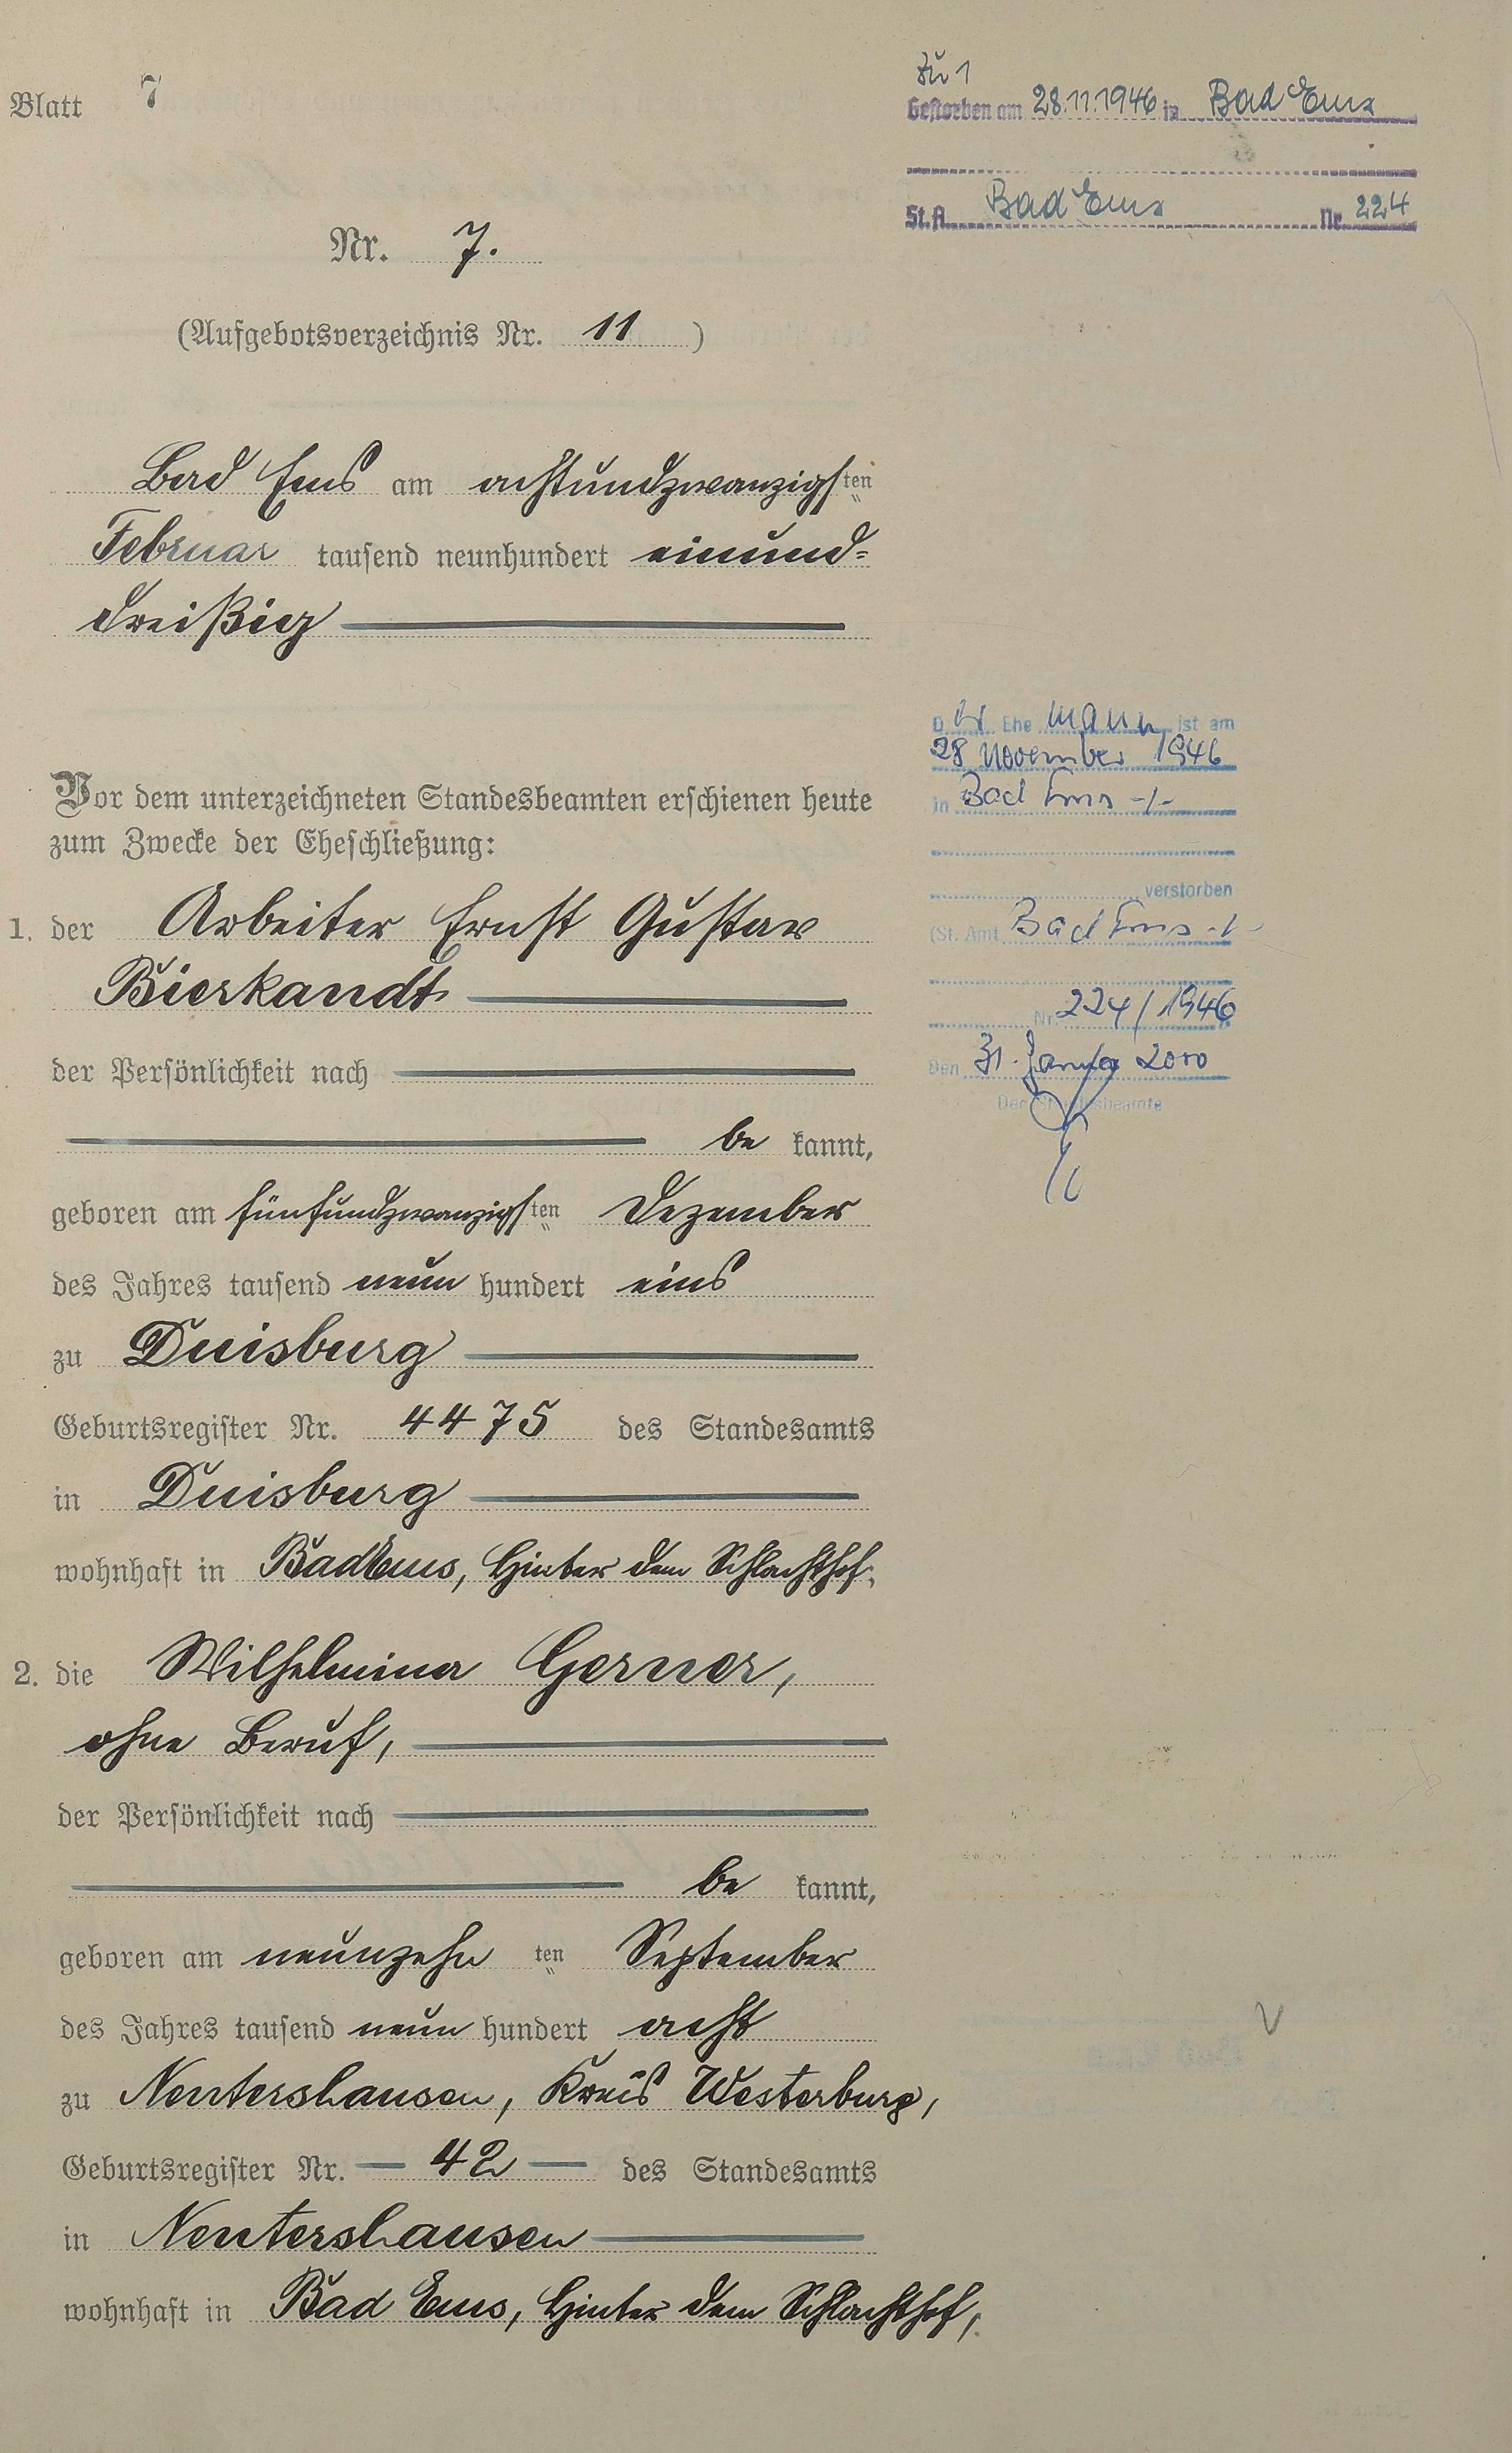 Blatt 7
Zu 1
Gestorben am 28.11.1946 in Bad Ems
St. A. Bad Ems Nr. 224
Nr. 7.
(Aufgebotsverzeichnis Nr. 11 )
Bad Ems am achtundzwanzigsten
Februar tausend neunhundert einund=
dreißig
Vor dem unterzeichneten Standesbeamten erschienen heute
zum Zwecke der Eheschließung:
1. der Arbeiter Ernst Gustav
Bierkandt
der Persönlichkeit nach
be kannt,
geboren am fünfundzwanzigsten Dezember
des Jahres tausend neun hundert eins
zu Duisburg
Geburtsregister Nr. 4475 des Standesamts
in Duisburg
wohnhaft in Bad Ems, Hinter dem Schlachthof,
2. die Wilhelmina Gerner,
ohne Beruf,
der Persönlichkeit nach
be kannt,
geboren am neunzehn ten September
des Jahres tausend neun hundert acht
zu Nentershausen, Kreis Westerburg,
Geburtsregister Nr. 42 des Standesamts
in Nentershausen
wohnhaft in Bad Ems, Hinter dem Schlachthof,
Der Ehe mann ist am
28 November 1946
in Bad Ems -/-
verstorben
(St. Amt Bad Ems -/-
Nr. 224/1946
Den 31. Januar 2000
Der Standesbeamte